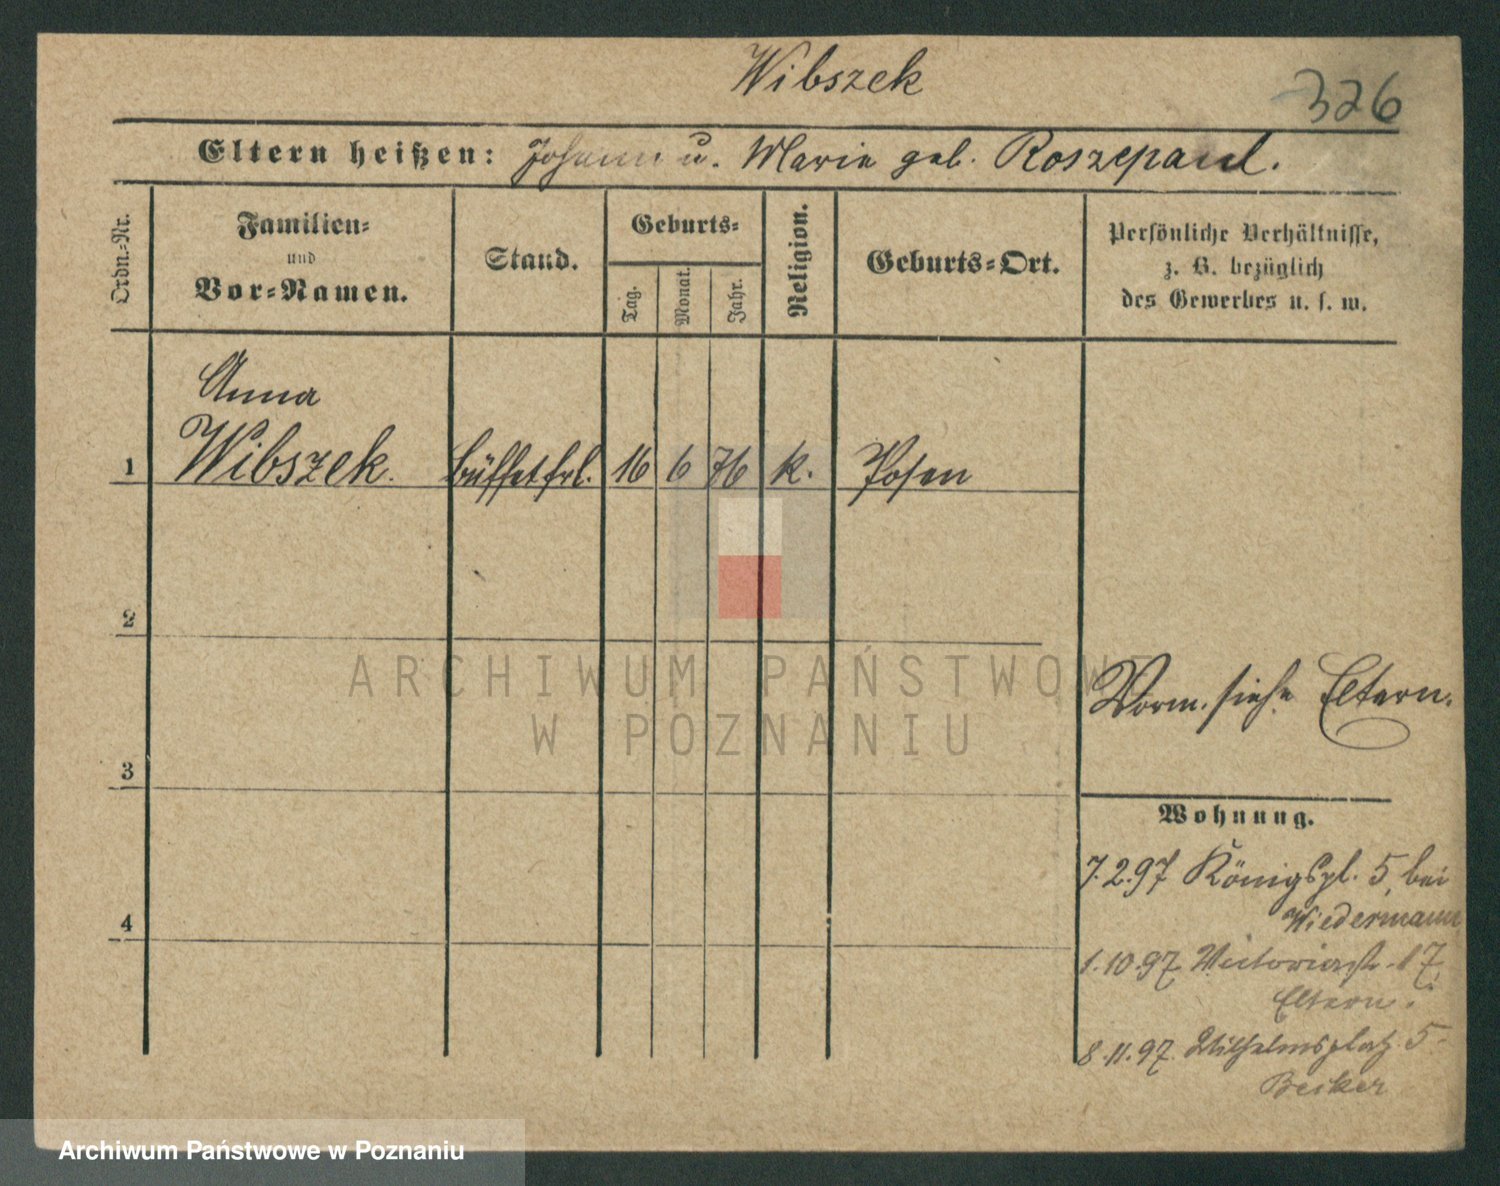 Wibszek
326
Eltern heißen: Johann u. Marie geb. Roszepaul.
Ordn.-Nr.
Familien-
und
Vor-Namen.
Stand.
Geburts-
Tag.
Monat.
Jahr.
Religion.
Geburts-Ort.
Persönliche Verhältnisse,
z. B. bezüglich
des Gewerbes u. s. w.
Anna
1 Wibszek. Büffetfrl. 16 6 76 k. Posen
2
ARCHIWUM PAŃSTWOWE
W POZNANIU
Vorm. siehe Eltern.
3
Wohnung.
7.2.97 Königspl. 5, bei
Wiedermann
4
1.10.97 Victoriastr. 17
Eltern.
8.11.97. Wilhelmsplatz 5
Becker
Archiwum Państwowe w Poznaniu